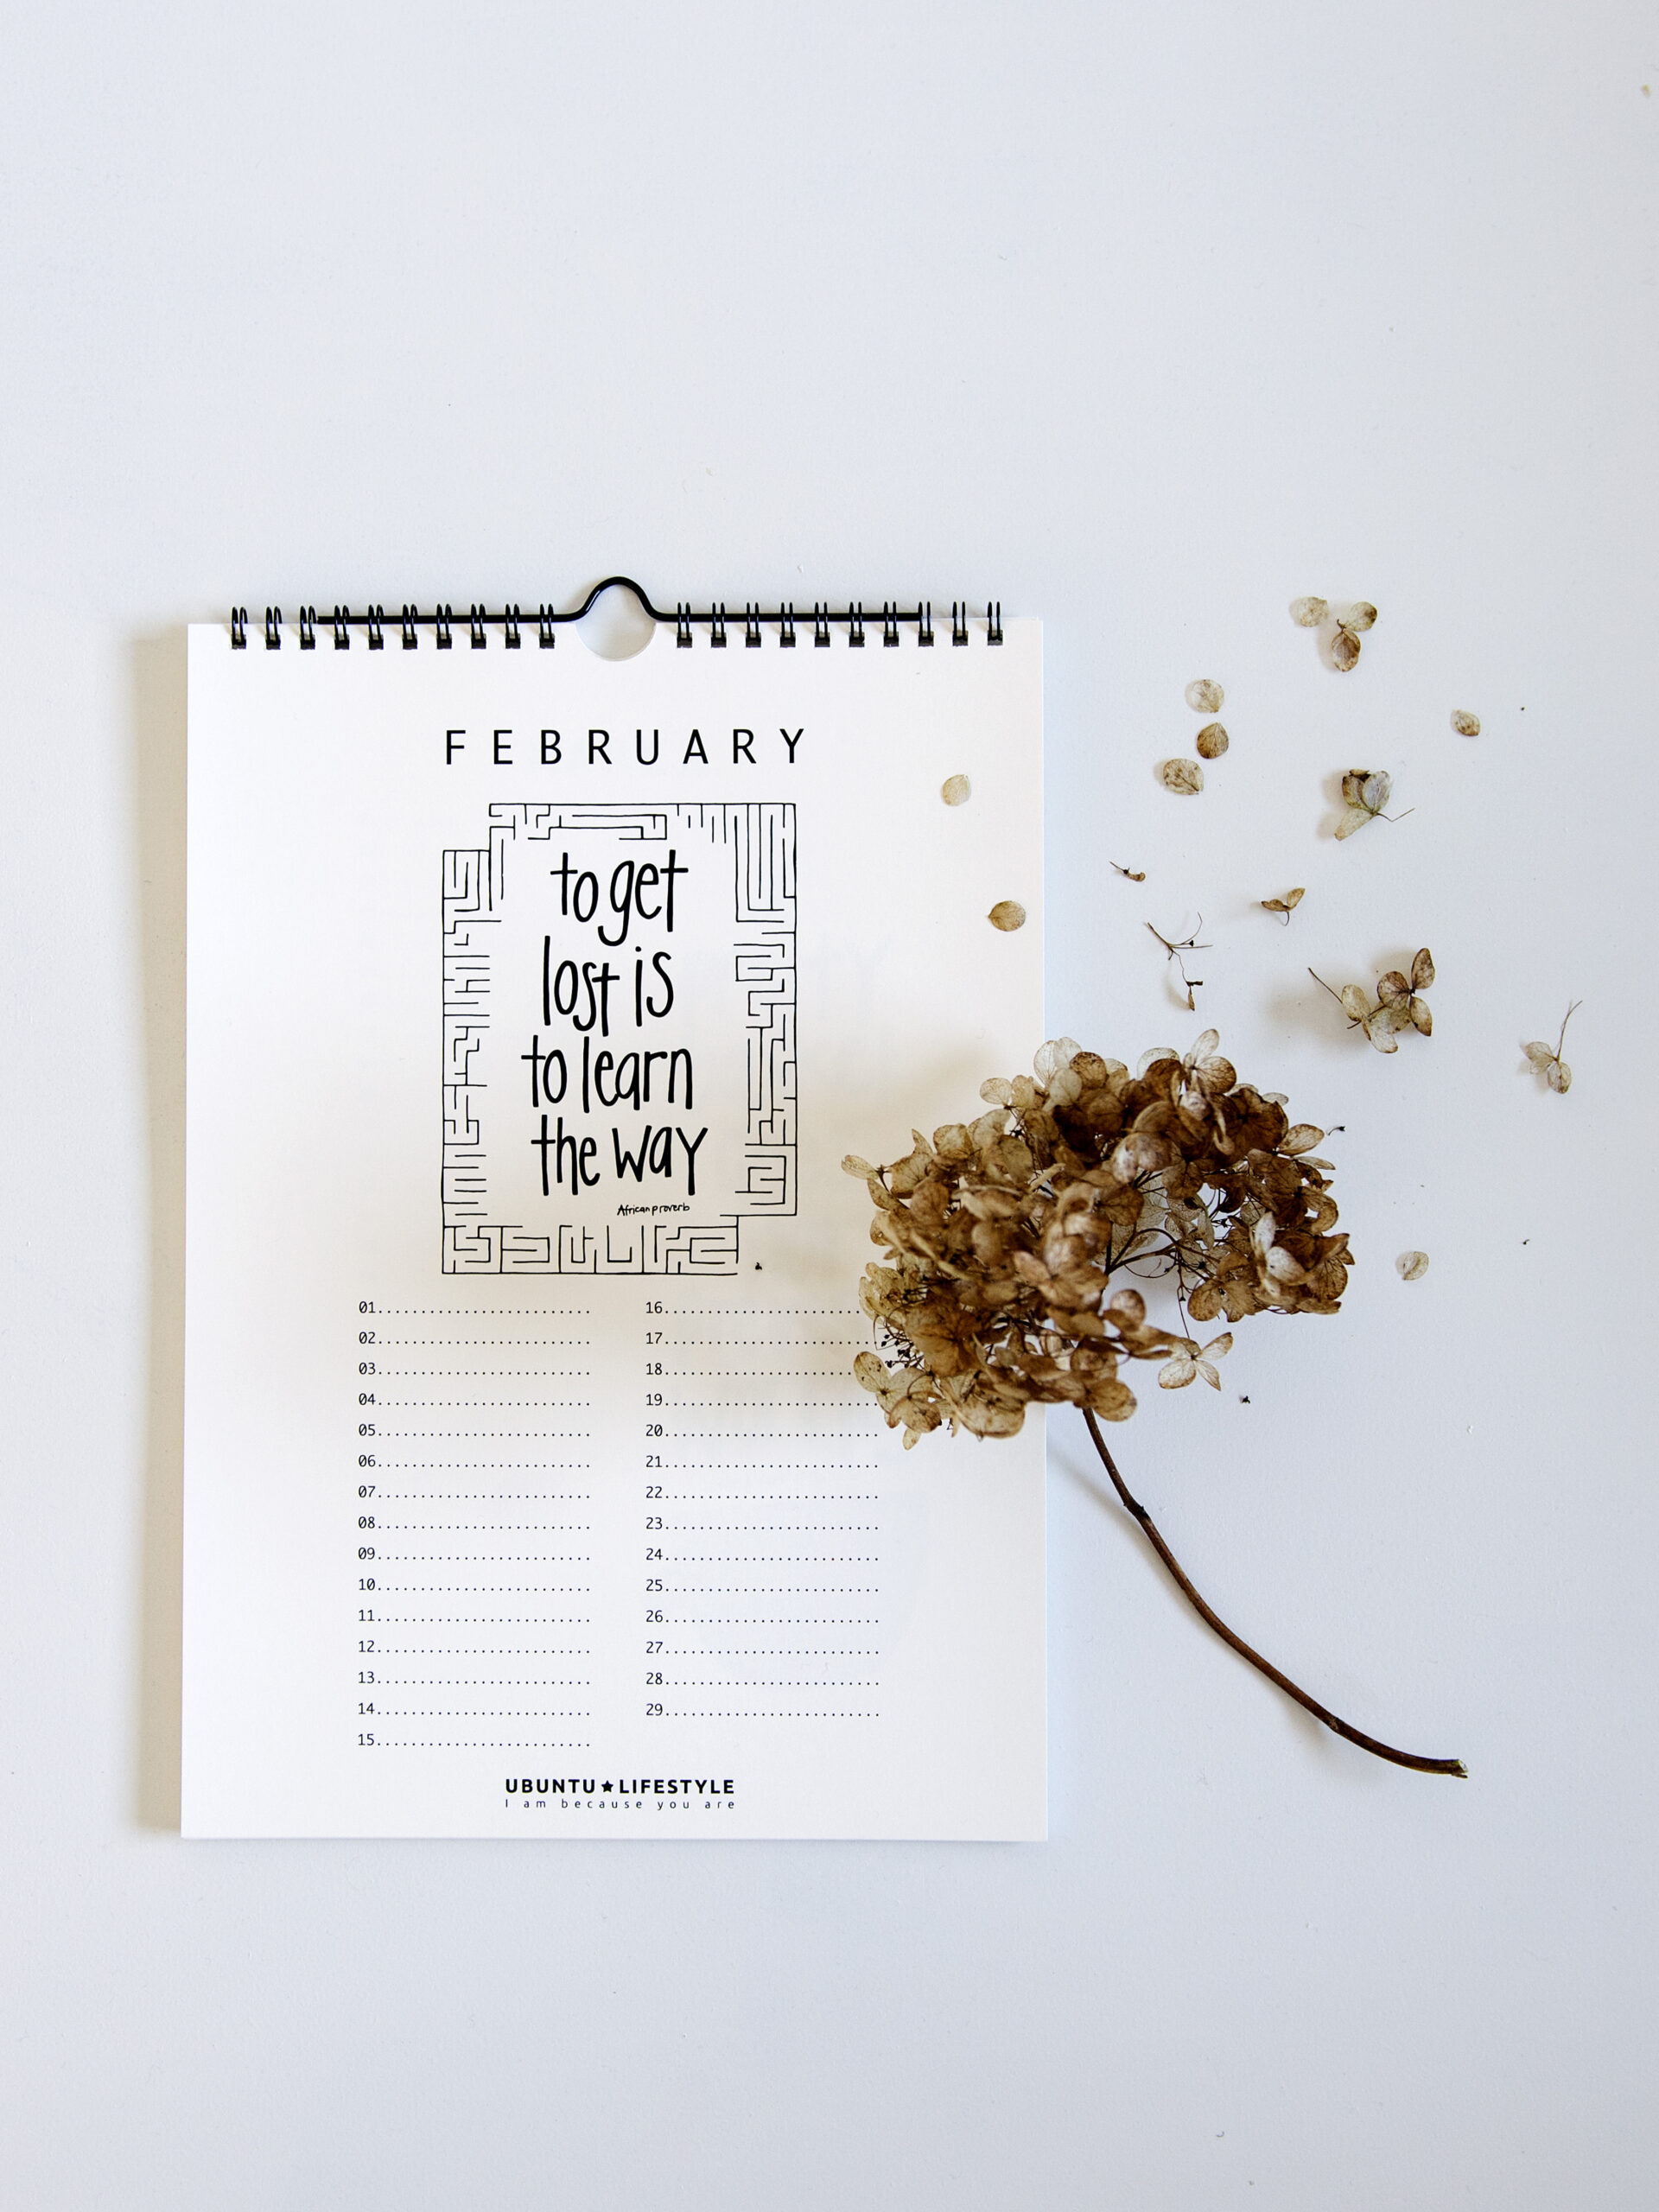 FEBRUARY
to get
lost is
to learn
the way
African proverb
01.........................
02.........................
03.........................
04.........................
05.........................
06.........................
07.........................
08.........................
09.........................
10.........................
11.........................
12.........................
13.........................
14.........................
15.........................
16.........................
17.........................
18.........................
19.........................
20.........................
21.........................
22.........................
23.........................
24.........................
25.........................
26.........................
27.........................
28.........................
29.........................
UBUNTU★LIFESTYLE
I am because you are